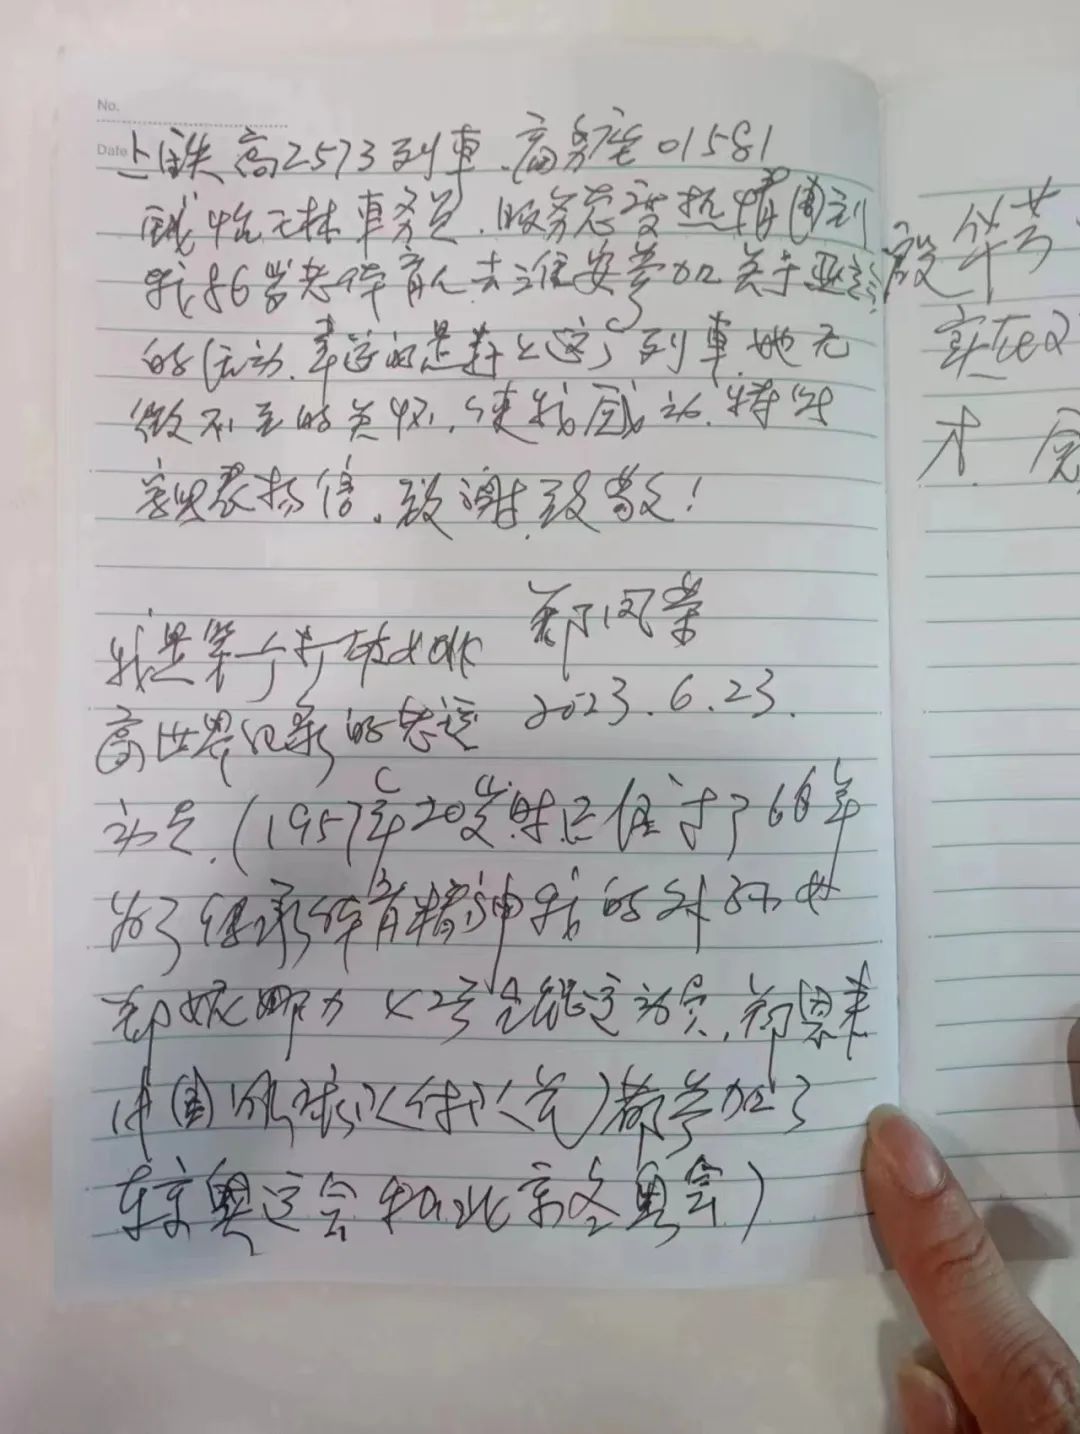 No.
Date
上铁高2573列車、商务座01581
臧怡 林 車务员、服务态度热情、周到
我86岁老体育人去淮安参加关于亚运
的活动、幸运的是乘上这了列車、她无
微不至的关怀、使我感动、特此
写 表扬信、致谢、致敬!
郑凤荣
2023.6.23.
我是第一个打破女跳
高世界纪录的老运
动员、(1957年20岁时、已经过了66年
为了继承体育精神我的外孙女
郑妮娜力 全能运动员、郑恩来
中国 球队 队员)都参加了
东京奥运会和北京冬奥会)
般 华
实在
才